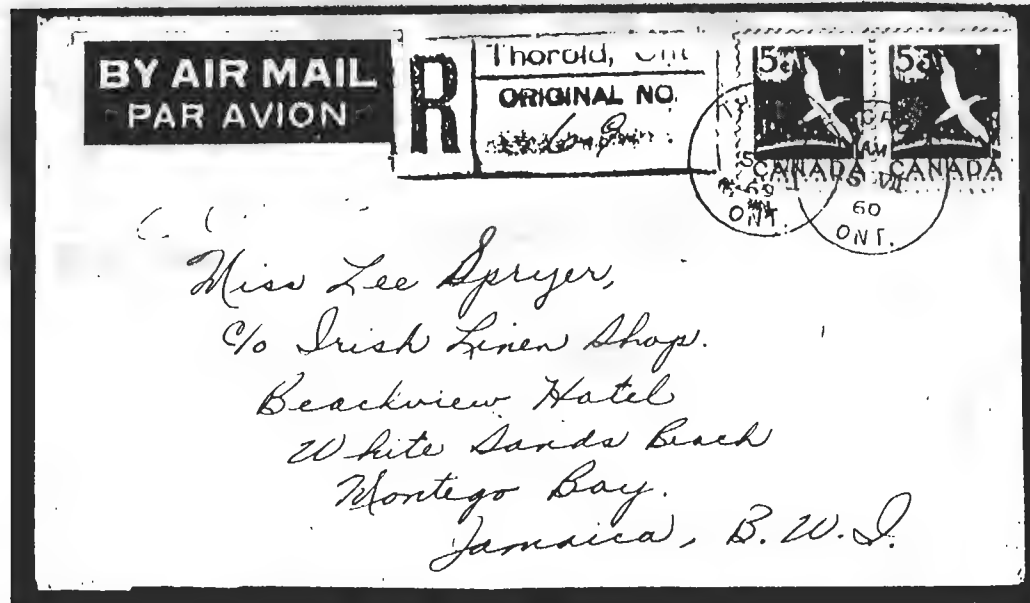 BY AIR MAIL
PAR AVION
R
Thorold, Ont
ORIGINAL NO.
5¢ 5¢
CANADA CANADA
60
ONT.
ONT.
Miss Lee Spryer,
c/o Irish Linen Shop.
Beachview Hotel
White Sands Beach
Montego Bay.
Jamaica, B. W. I.